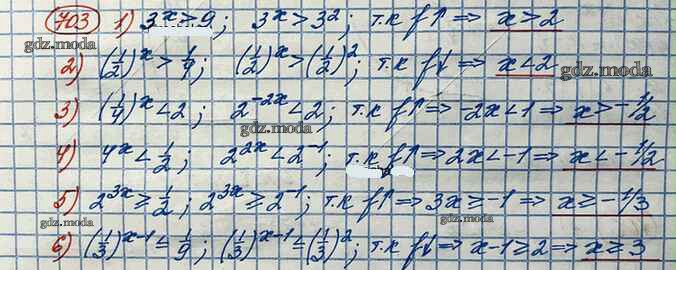 703 1) 3^x > 9; 3^x > 3^2; т.к f↑ ⇒ x > 2
gdz.moda
2) (1/2)^x > 1/4; (1/2)^x > (1/2)^2; т.к f↓ ⇒ x < 2
gdz.moda gdz.moda
3) (1/4)^x < 2; 2^{-2x} < 2; т.к f↑ ⇒ -2x < 1 ⇒ x > -1/2
gdz.moda gdz.moda
4) 4^x < 1/2; 2^{2x} < 2^{-1}; т.к f↑ ⇒ 2x < -1 ⇒ x < -1/2
5) 2^{3x} ≥ 1/2; 2^{3x} ≥ 2^{-1}; т.к f↑ ⇒ 3x ≥ -1 ⇒ x ≥ -1/3
gdz.moda gdz.moda
6) (1/3)^{x-1} ≤ 1/9; (1/3)^{x-1} ≤ (1/3)^2; т.к f↓ ⇒ x-1 ≥ 2 ⇒ x ≥ 3
gdz.moda